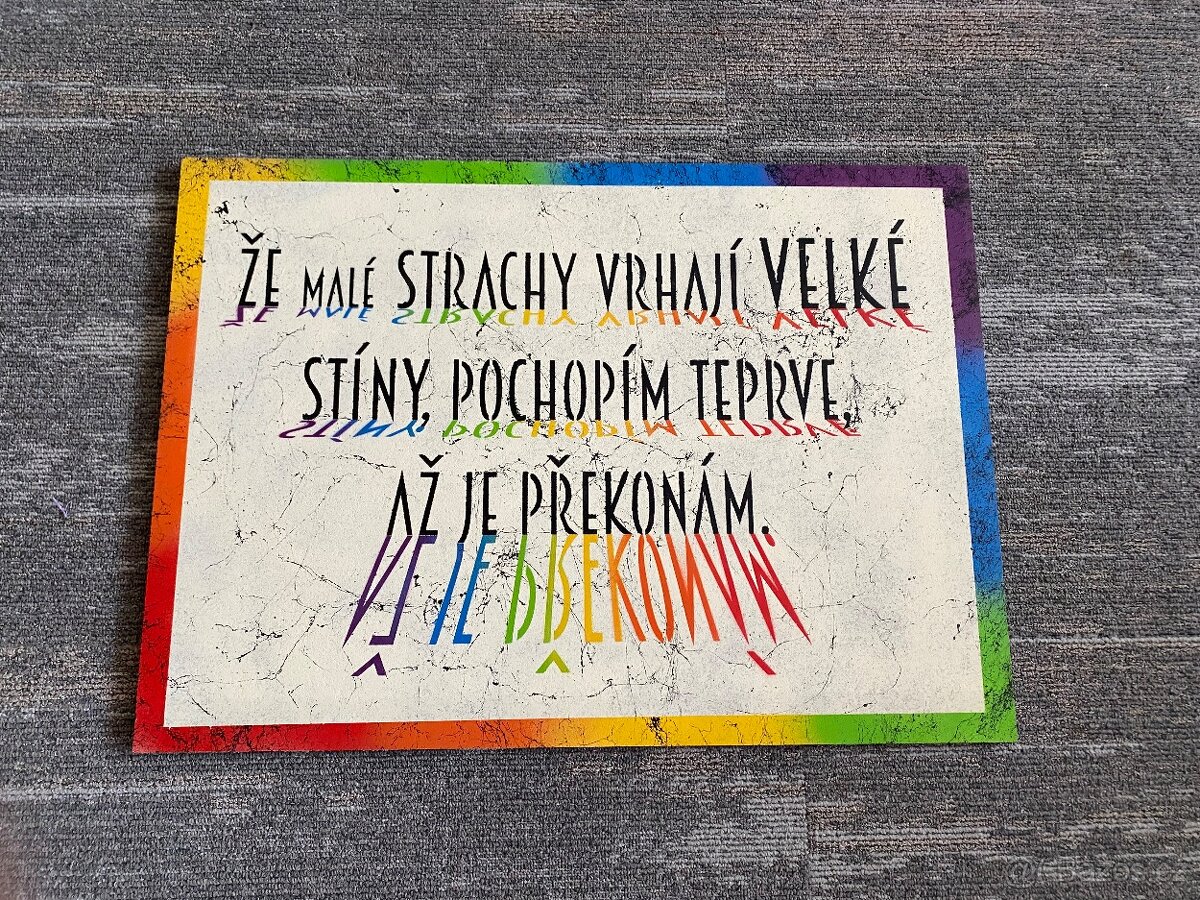 ŽE MALÉ STRACHY VRHAJÍ VELKÉ
STÍNY, POCHOPÍM TEPRVE,
AŽ JE PŘEKONÁM.
Bazos.cz